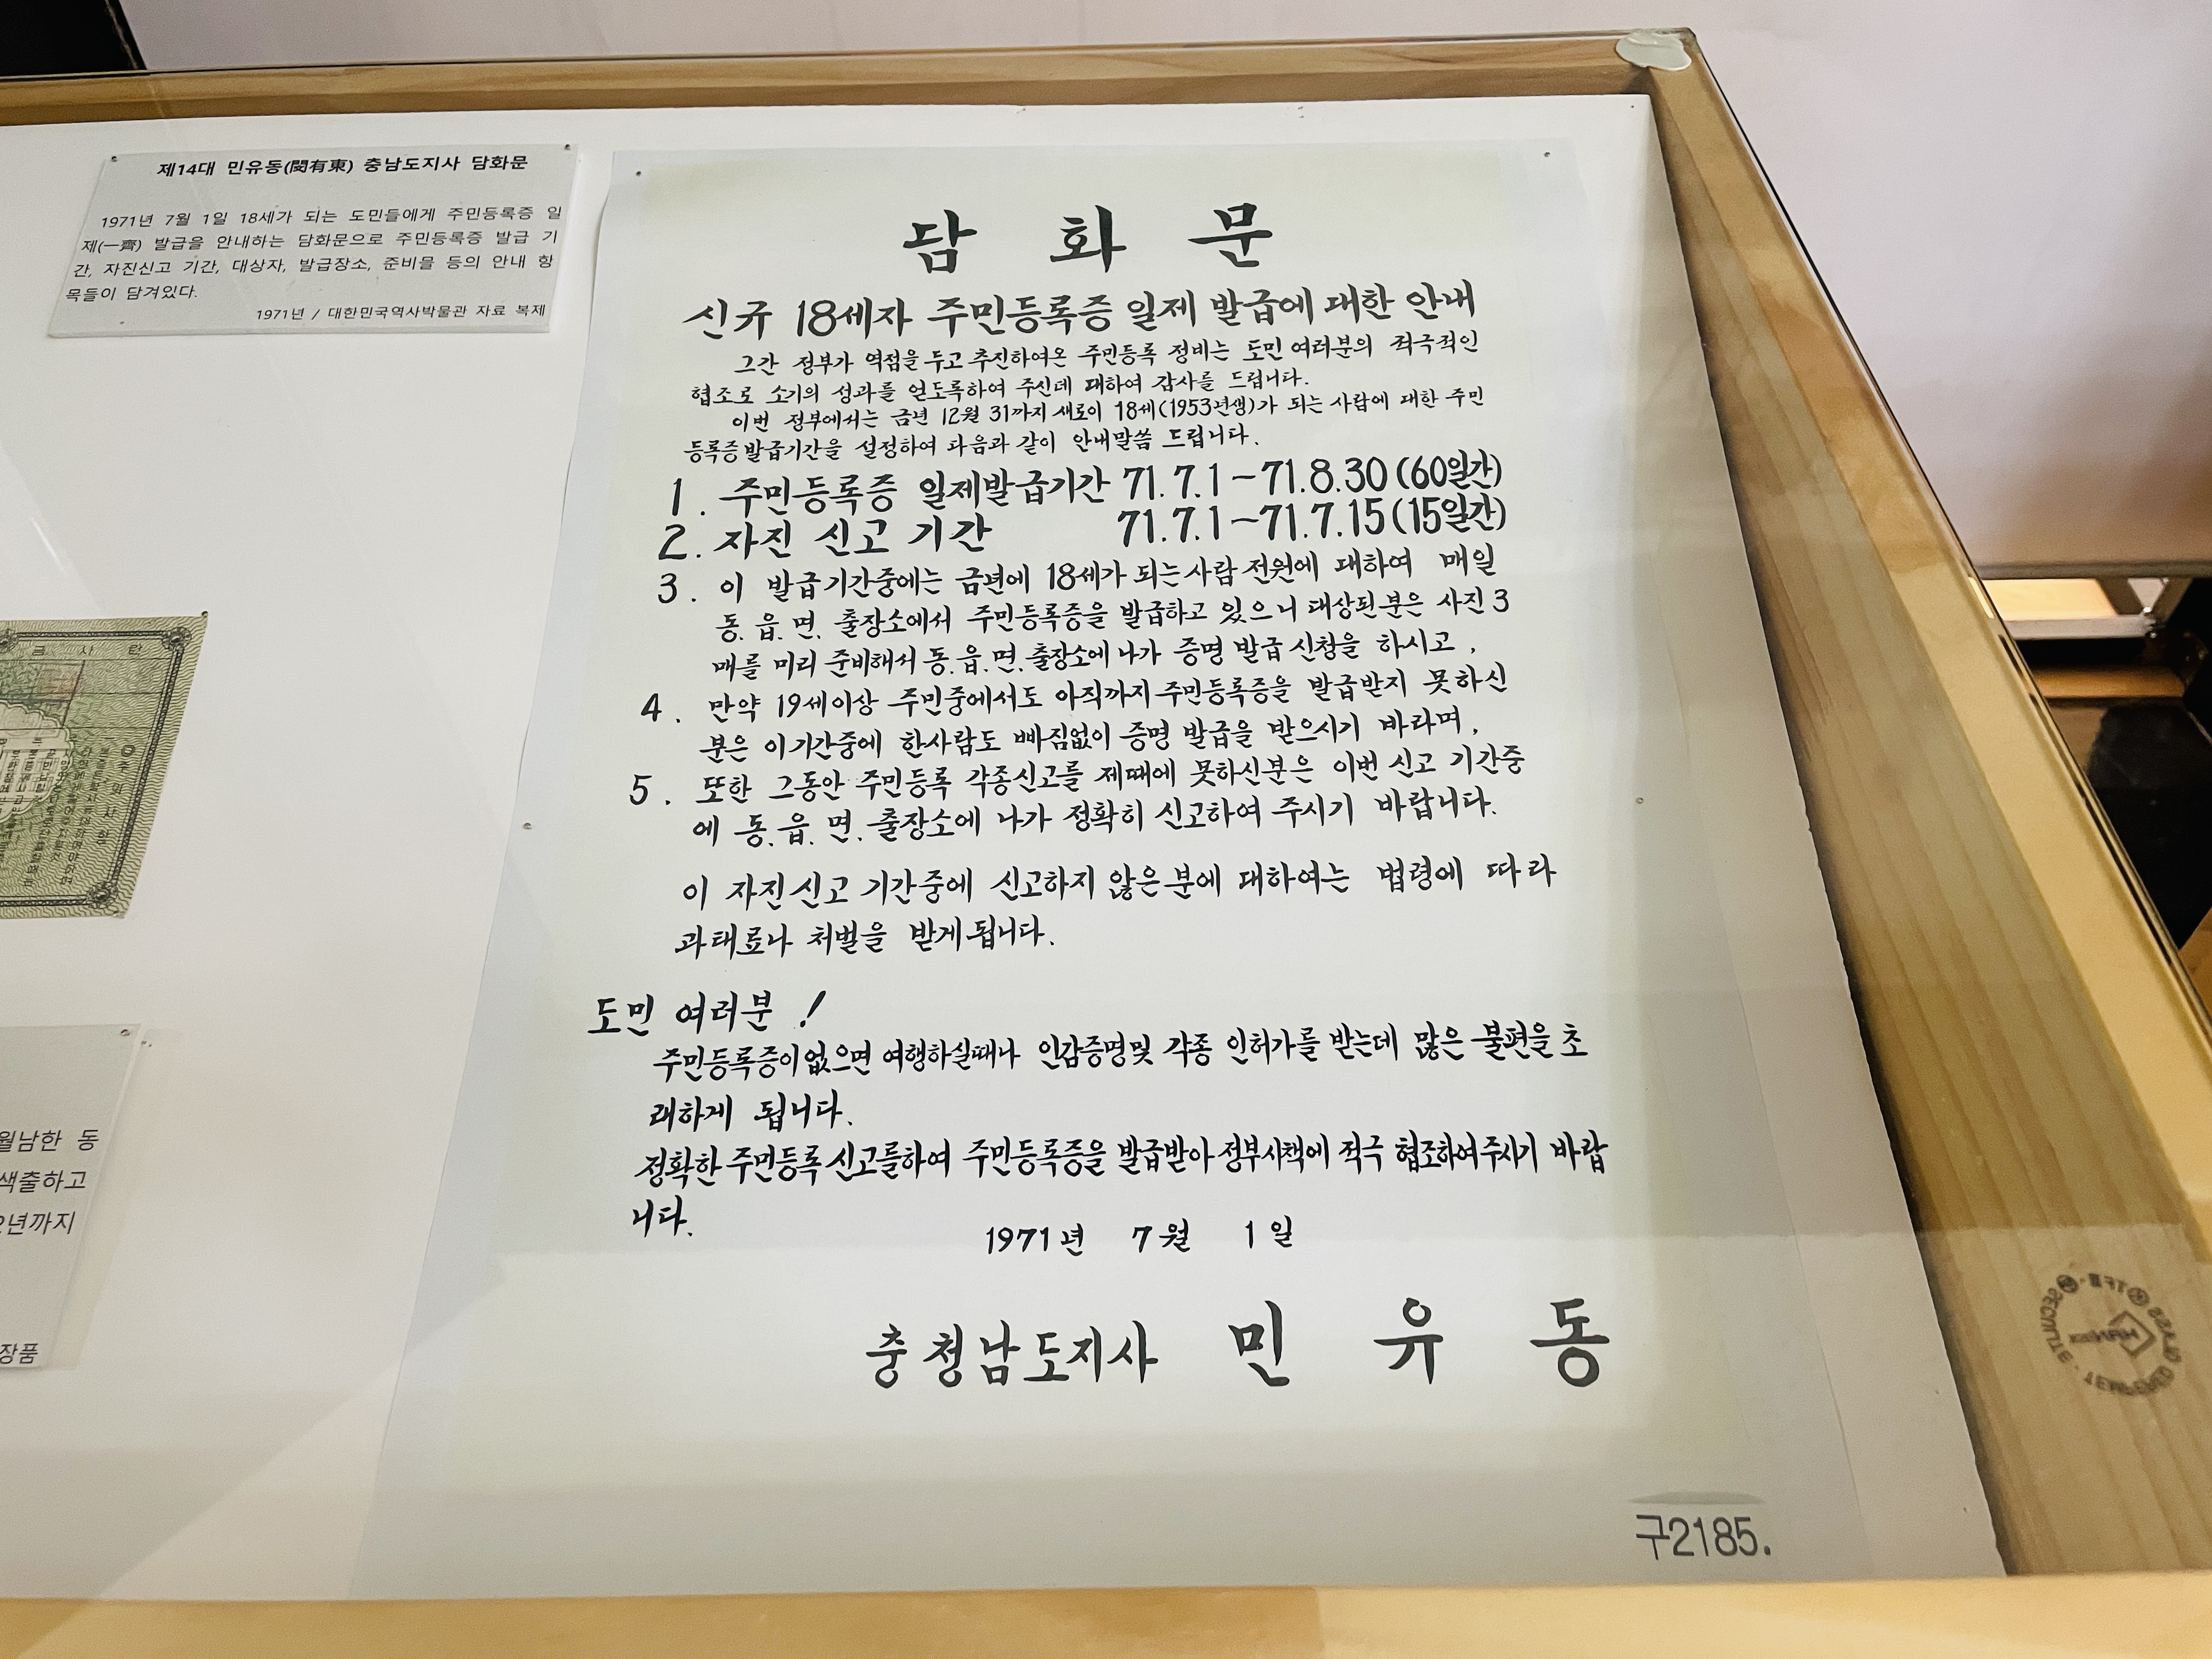 제14대 민유동(閔有東) 충남도지사 담화문
1971년 7월 1일 18세가 되는 도민들에게 주민등록증 일
제(一齊) 발급을 안내하는 담화문으로 주민등록증 발급 기
간, 자진신고 기간, 대상자, 발급장소, 준비물 등의 안내 항
목들이 담겨있다.
1971년 / 대한민국역사박물관 자료 복제
담 화 문
신규 18세자 주민등록증 일제 발급에 대한 안내
그간 정부가 역점을 두고 추진하여온 주민등록 정비는 도민 여러분의 적극적인
협조로 소기의 성과를 얻도록하여 주신데 대하여 감사를 드립니다.
이번 정부에서는 금년 12월 31까지 새로이 18세(1953년생)가 되는 사람에 대한 주민
등록증 발급기간을 설정하여 다음과 같이 안내말씀 드립니다.
1. 주민등록증 일제발급기간 71.7.1-71.8.30(60일간)
2. 자진 신고 기간 71.7.1-71.7.15(15일간)
3. 이 발급기간중에는 금년에 18세가 되는 사람 전원에 대하여 매일
동.읍.면.출장소에서 주민등록증을 발급하고 있으니 대상된분은 사진 3
매를 미리 준비해서 동.읍.면.출장소에 나가 증명 발급 신청을 하시고,
4. 만약 19세이상 주민중에서도 아직까지 주민등록증을 발급받지 못하신
분은 이기간중에 한사람도 빠짐없이 증명 발급을 받으시기 바라며,
5. 또한 그동안 주민등록 각종신고를 제때에 못하신분은 이번 신고 기간중
에 동.읍.면.출장소에 나가 정확히 신고하여 주시기 바랍니다.
이 자진신고 기간중에 신고하지 않은분에 대하여는 법령에 따라
과태료나 처벌을 받게됩니다.
도민 여러분!
주민등록증이없으면 여행하실때나 인감증명및 각종 인허가를 받는데 많은 불편을 초
래하게 됩니다.
정확한 주민등록 신고를하여 주민등록증을 발급받아 정부시책에 적극 협조하여주시기 바랍
니다.
1971년 7월 1일
충청남도지사 민유동
구2185.
월남한 동
색출하고
년까지
장품